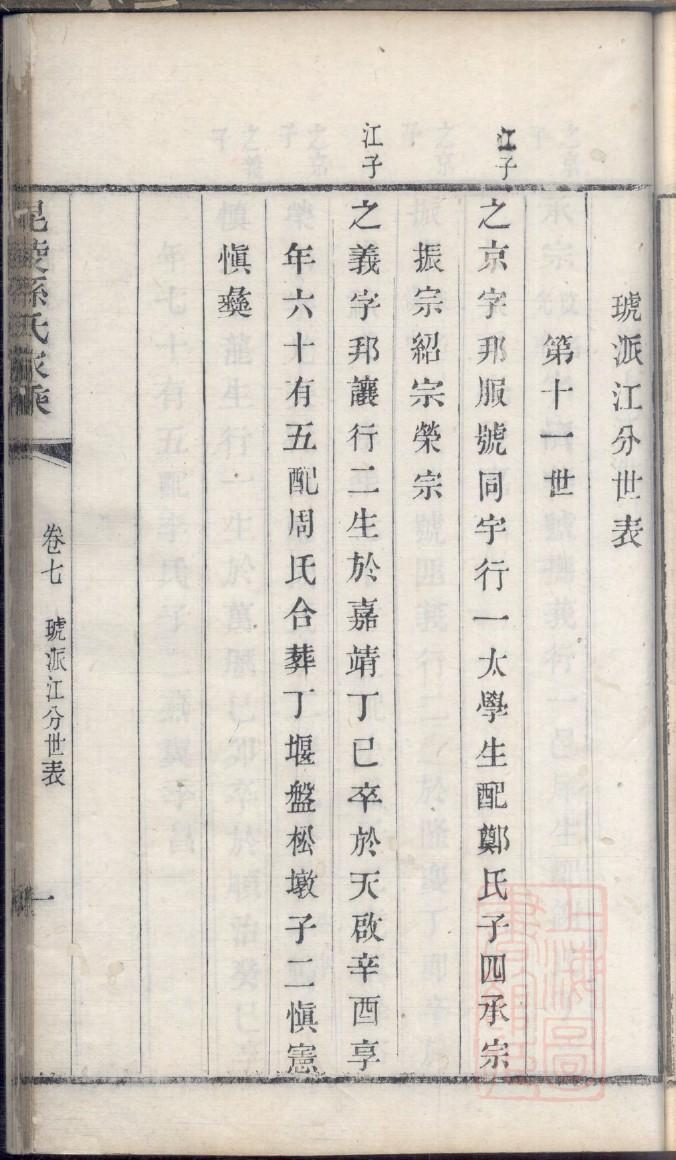 琥派江分世表
第十一世
江子
之京字邦服號同宇行一太學生配鄭氏子四承宗
振宗紹宗榮宗
江子
之義字邦讓行二生於嘉靖丁巳卒於天啟辛酉享
年六十有五配周氏合葬丁堰盤松墩子二慎憲
慎彝
毘陵孫氏家乘
卷七 琥派江分世表
一